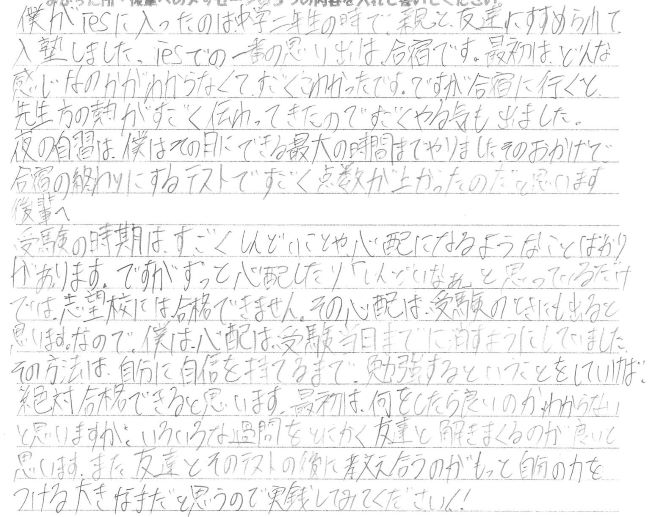 よかった所・後輩へのメッセージの3つの内容を入れて書いてください。
僕がresに入ったのは中学二年生の時で、親と、友達にすすめられて
入塾しました。resでの一番の思い出は、合宿です。最初は、どんな
感じなのかがわからなくて、すごくこわかったです。ですが合宿に行くと、
先生方の熱がすごく伝わってきたのですごくやる気も出ました。
夜の自習は、僕はその日にできる最大の時間までやりました。そのおかげで
合宿の終わりにするテストですごく点数が上がったのだと思います
後輩へ
受験の時期は、すごくしんどいことや、心配になるようなことばかり
があります。ですがずっと心配したり「しんどいなぁ」と思っているだけ
では、志望校には合格できません。その心配は、受験のときにも出ると
思います。なので、僕は心配は、受験当日までに消すようにしていました。
その方法は、自分に自信を持てるまで、勉強するということをしていけば、
絶対合格できると思います。最初は、何をしたら良いのかわからない
と思いますが、いろいろな過問をとにかく友達と解きまくるのが良いと
思います。また、友達とそのテストの後に教え合うのがもっと自分の力を
つける大きなまだと思うので実践してみてください!